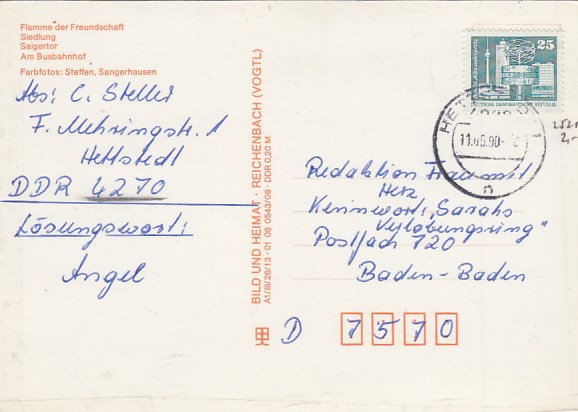 Flamme der Freundschaft
Siedlung
Saigertor
Am Busbahnhof
Farbfotos: Steffen, Sangerhausen
Abs: C. Steller
F. Mehringstr. 1
Hettstedt
DDR 4270
Lösungswort:
Angel
BILD UND HEIMAT · REICHENBACH (VOGTL)
A1/III/26/13 · 01 06 0543/08 · DDR 0,20 M
25
DEUTSCHE DEMOKRATISCHE REPUBLIK
11.06.90
n
Redaktion Frau mit
Herz
Kennwort: „Sarahs
Verlobungsring“
Postfach 720
Baden-Baden
D 7570